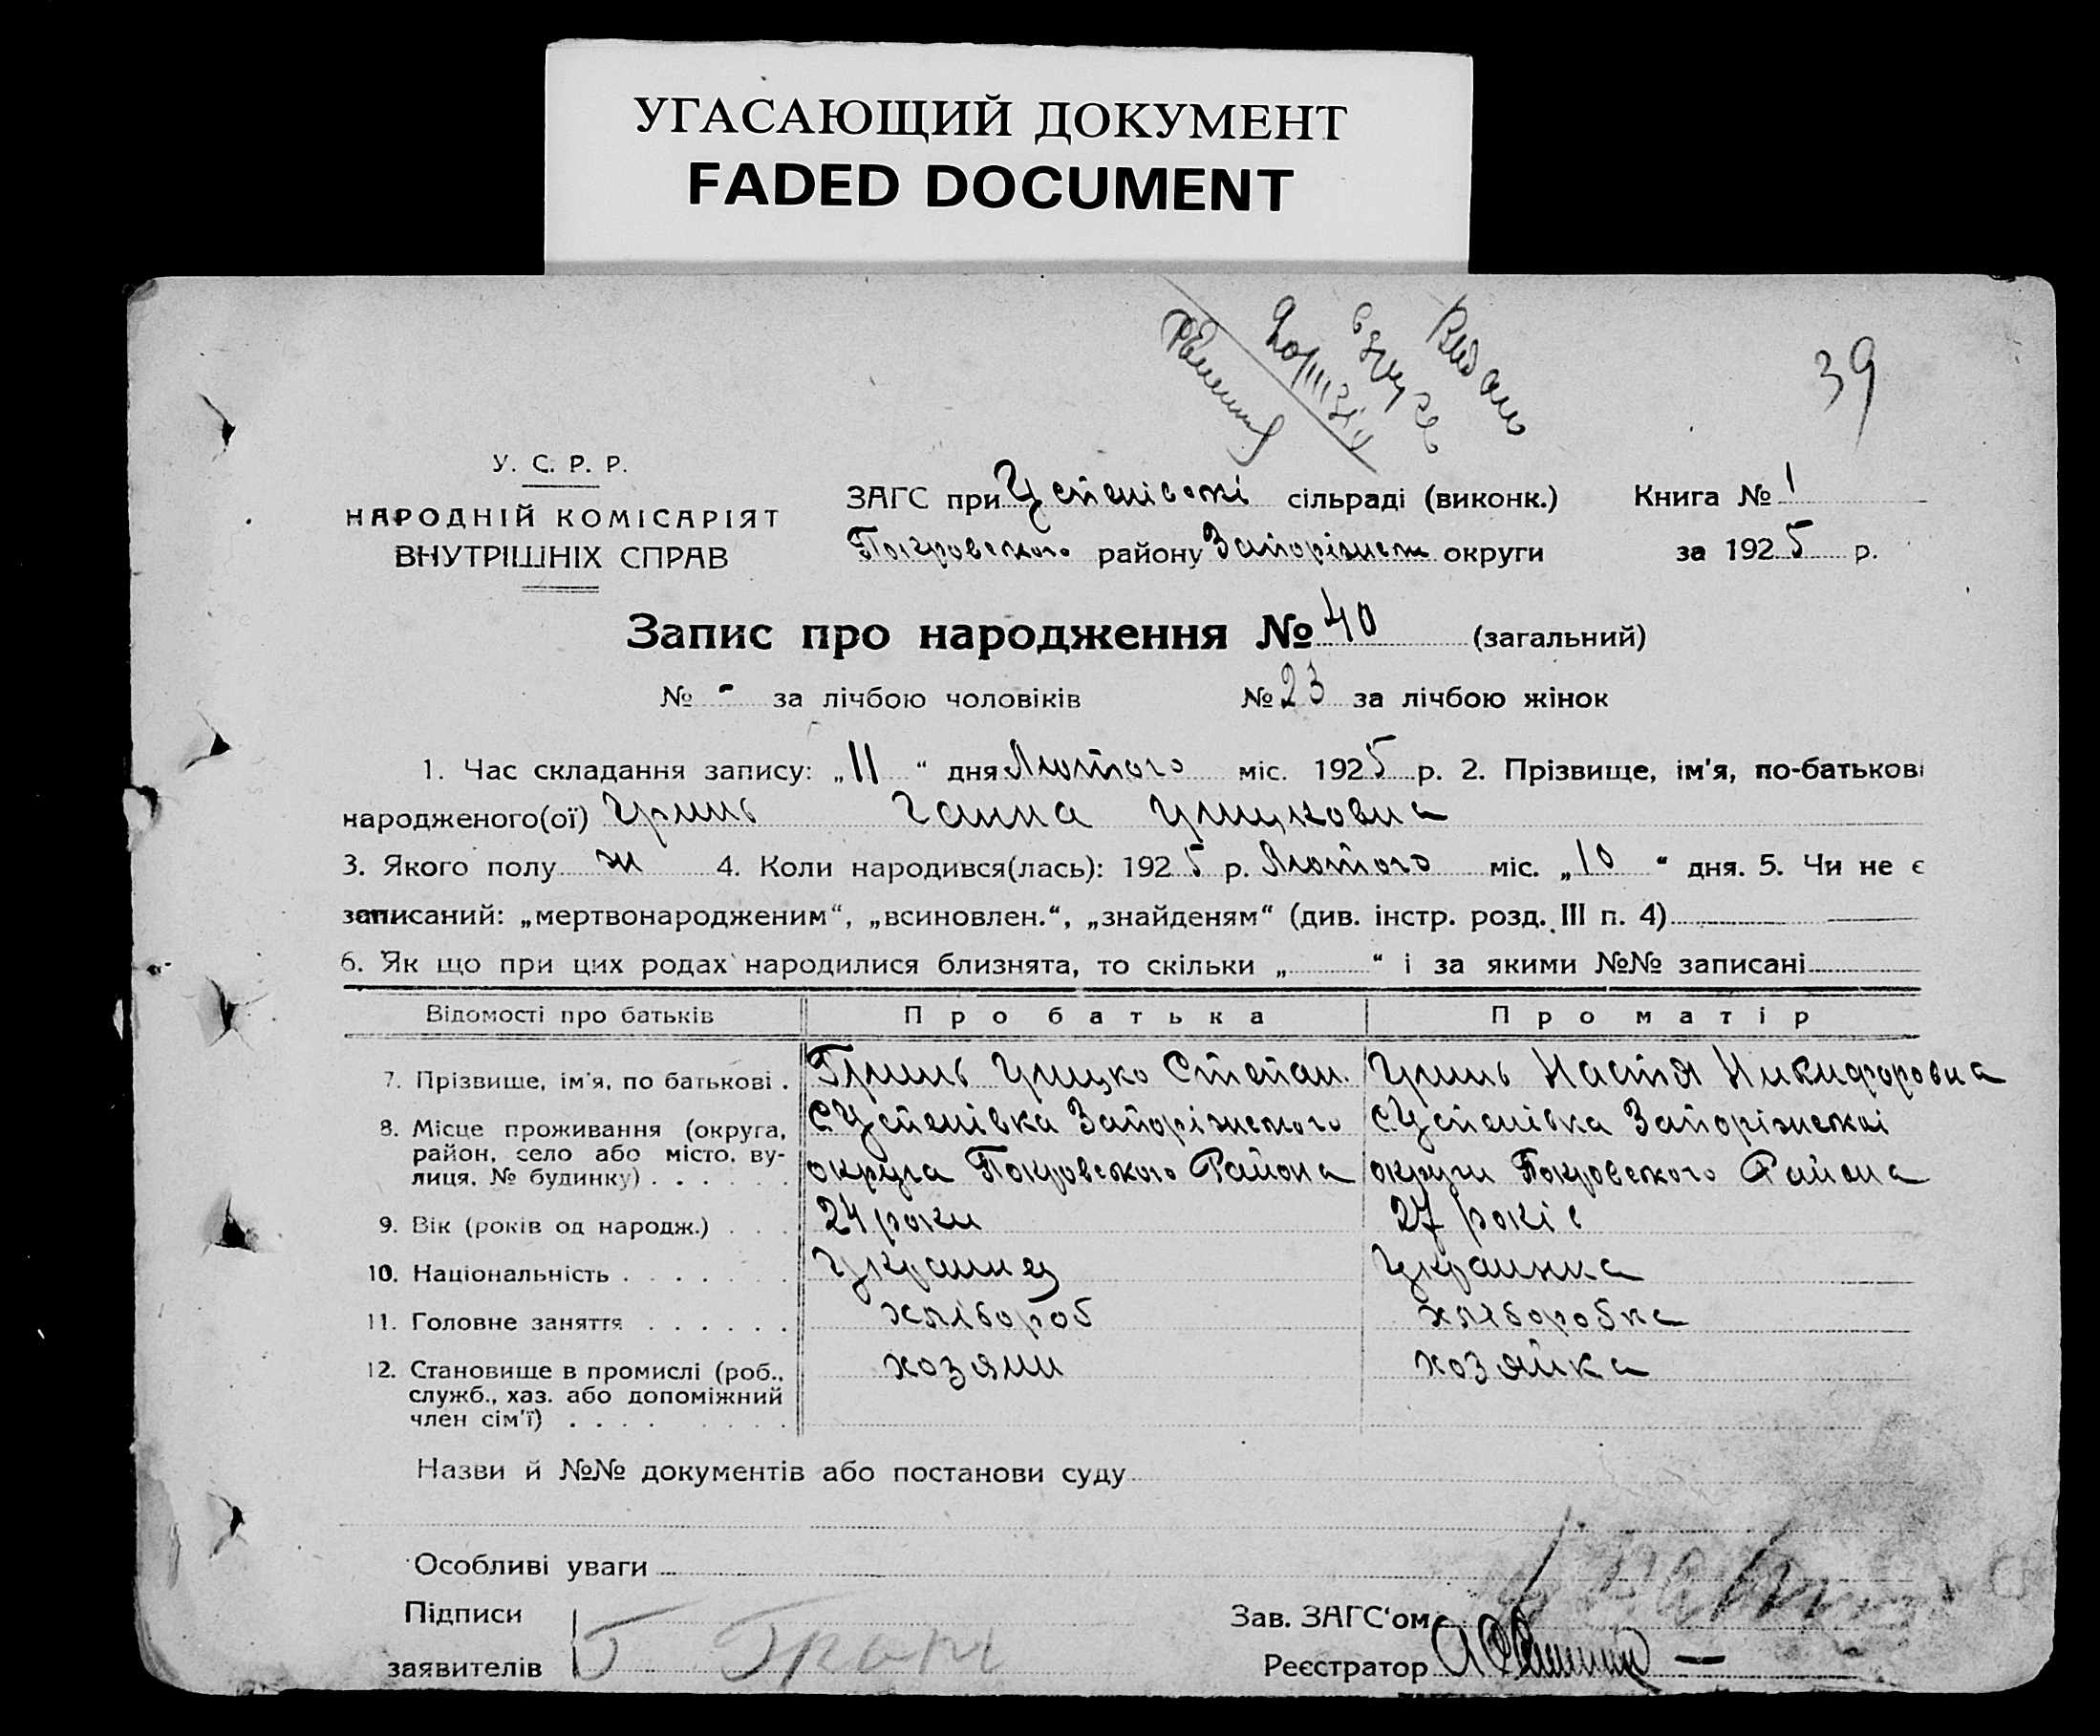 УГАСАЮЩИЙ ДОКУМЕНТ
FADED DOCUMENT
39
У. С. Р. Р.
НАРОДНІЙ КОМІСАРІЯТ
ВНУТРІШНІХ СПРАВ
ЗАГС при Успенівскі сільраді (виконк.) Книга № 1
Покровского району Запоріжськ округи за 1925 р.
Запис про народження № 40 (загальний)
№ - за лічбою чоловіків № 23 за лічбою жінок
1. Час складання запису: „11“ дня Лютого міс. 1925 р. 2. Прізвище, ім'я, по-батькові
народженого(ої) Гринь Ганна Грицковна
3. Якого полу ж 4. Коли народився(лась): 1925 р. Лютого міс. „10“ дня. 5. Чи не є
записаний: „мертвонародженим“, „всиновлен.“, „знайденям“ (див. інстр. розд. III п. 4)
6. Як що при цих родах народилися близнята, то скільки „ “ і за якими №№ записані
Відомості про батьків Про батька Про матір
7. Прізвише, ім'я, по батькові . Гринь Грицко Степан. Гринь Настя Никифоровна
8. Місце проживання (округа, район, село або місто, вулиця, № будинку) . . . . . . С Успенівка Запоріжского округа Покровського Района С Успенівка Запоріжскоі округи Покровского Района
9. Вік (років од народж.) . . . 24 роки 27 років
10. Національність . . . . . . . Украинец Украинка
11. Головне заняття . . . . . . хлібороб хлеборобка
12. Становище в промислі (роб., служб., хаз. або допоміжний член сім'ї) . . . . . . . . хозяин хозяйка
Назви й №№ документів або постанови суду
Особливі уваги
Підписи Зав. ЗАГС'ом
заявителів Реєстратор